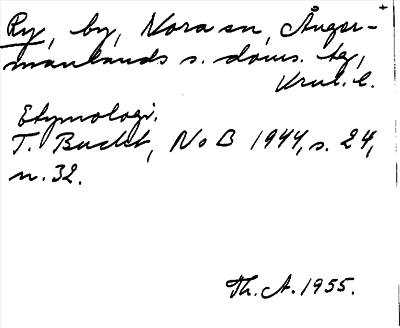 Ry, by, Nora sn, Ånger-
manlands s. doms. tg,
Vnrl. l.
Etymologi.
T. Bucht, NoB 1944, s. 24,
n. 32.
Th. A. 1955.